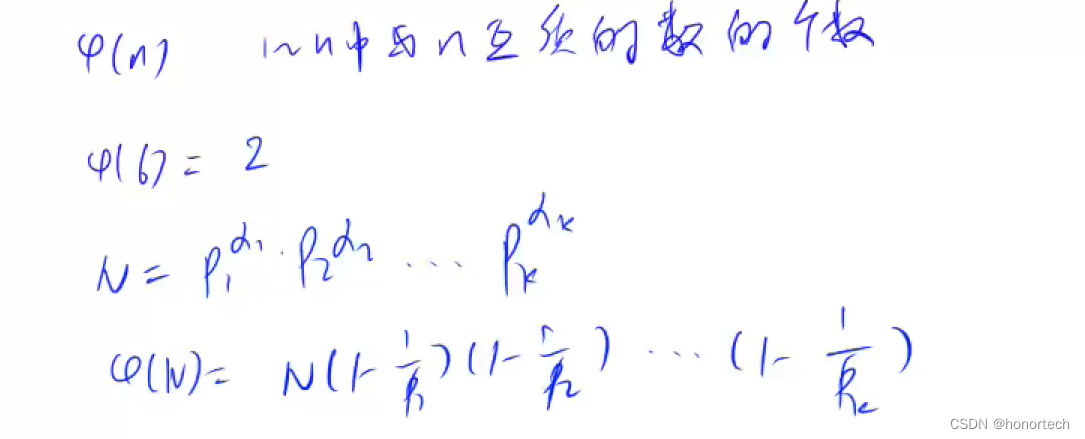 φ(n) 1~n中与n互质的数的个数
φ(6) = 2
N = P₁^α₁ · P₂^α₂ ... Pₖ^αₖ
φ(N) = N(1-1/P₁)(1-1/P₂) ... (1-1/Pₖ)
CSDN @honortech